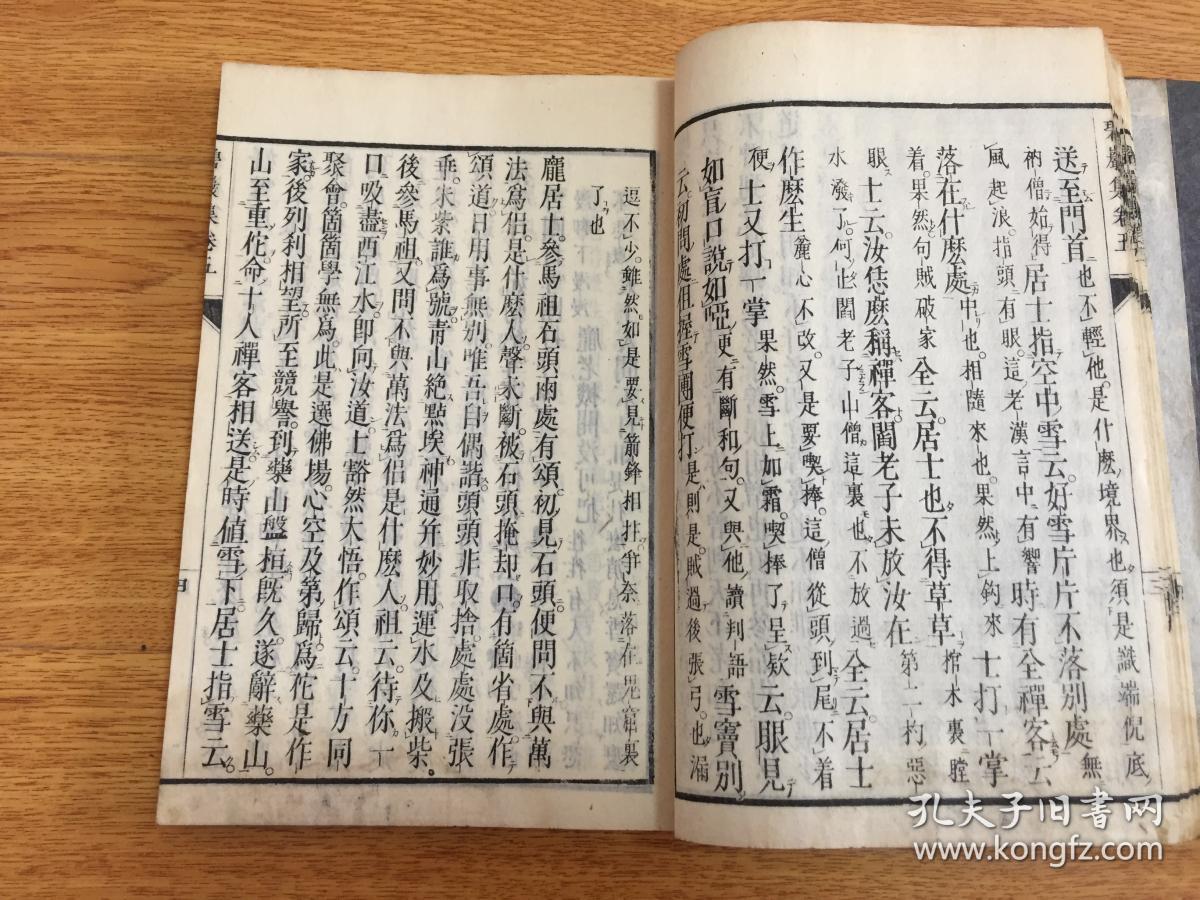 送至門首也不輕他是什麼境界也須是識端倪底
衲僧始得居士指空中雪云好雪片片不落別處無
風起浪指頭有眼這老漢言中有響時有全禪客云
落在什麼處中也相隨來也果然上鈎來士打一掌
着果然句賊破家全云居士也不得草草棺木裏瞠
眼士云汝恁麼稱禪客閻老子未放汝在第二杓惡
水潑了何止閻老子山僧這裏也不放過全云居士
作麼生麁心不改又是要喫棒這僧從頭到尾不着
便士又打一掌果然雪上加霜喫棒了呈欵云眼見
如盲口說如啞更有斷和句又與他讀判語雪竇別
云初問處但握雪團便打是則是賊過後張弓也漏
逗不少雖然如是要見箭鋒相拄爭奈落在鬼窟裏
了也
龐居士參馬祖石頭兩處有頌初見石頭便問不與萬
法為侶是什麼人聲未斷被石頭掩却口有箇省處作
頌道日用事無別唯吾自偶諧頭頭非取捨處處沒張
乖朱紫誰為號青山絕點埃神通并妙用運水及搬柴
後參馬祖又問不與萬法為侶是什麼人祖云待你一
口吸盡西江水即向汝道士豁然大悟作頌云十方同
聚會箇箇學無為此是選佛場心空及第歸為佗是作
家後列刹相望所至競譽到藥山盤桓既久遂辭藥山
山至重佗命十人禪客相送是時值雪下居士指雪云
四
孔夫子旧书网
www.kongfz.com